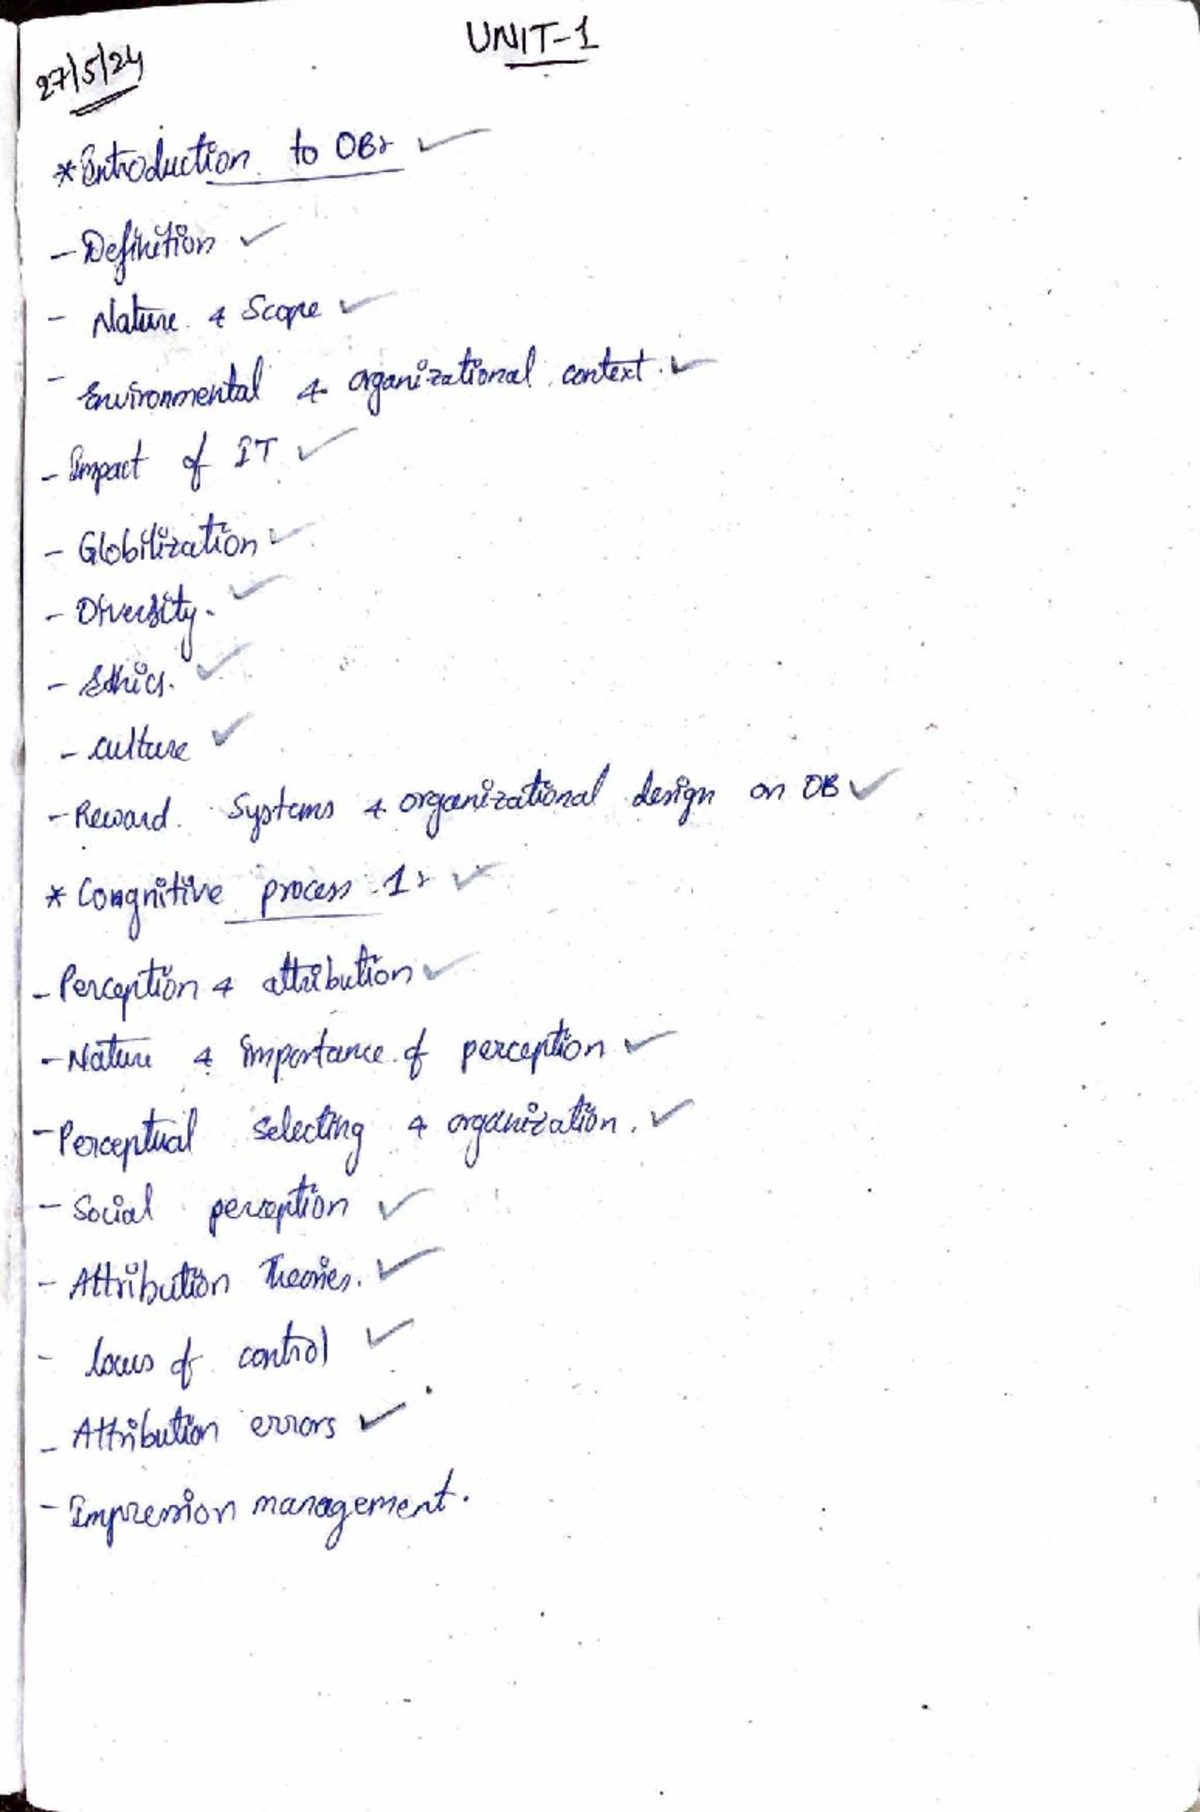 UNIT-1
27/5/24
*Introduction to OB:
- Definition
- Nature & Scope
- Environmental & organizational context.
- Impact of IT
- Globilization
- Diversity.
- Ethics.
- culture
- Reward Systems & organizational design on OB
* Congnitive process 1:
- Perception & attribution
- Nature & importance of perception
- Perceptual selecting & organization.
- Social perception
- Attribution Theories.
- locus of control
- Attribution errors
- Impression management.